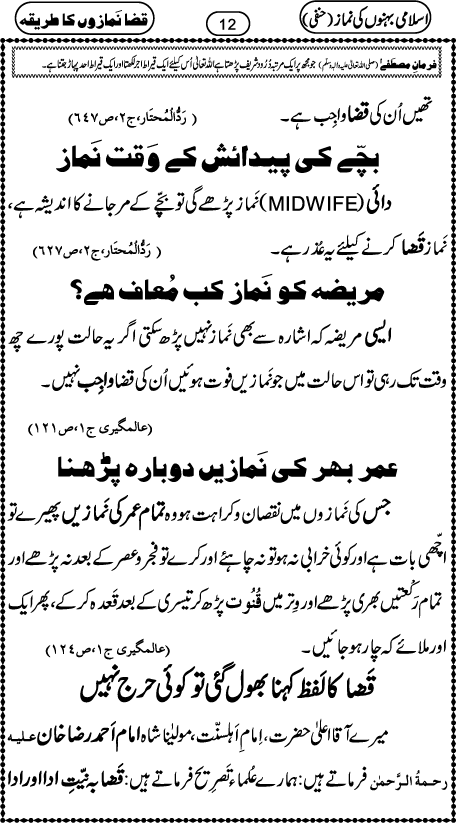 اسلامی بہنوں کی نماز (حنفی) 12 قضا نمازوں کا طریقہ
فرمانِ مصطفےٰ (صلی اللہ تعالیٰ علیہ والہ وسلم) جو مجھ پر ایک مرتبہ دُرود شریف پڑھتا ہے اللہ تعالیٰ اُس کیلئے ایک قیراط اجر لکھتا اور ایک قیراط احد پہاڑ جتنا ہے۔
تھیں اُن کی قضا واجِب ہے۔ (رَدُّالْمُحتَار، ج۲، ص۶۴۷)
بچّے کی پیدائش کے وَقت نَماز
دائی (MIDWIFE) نَماز پڑھے گی تو بچّے کے مر جانے کا اندیشہ ہے،
نَماز قَضا کرنے کیلئے یہ عُذر ہے۔ (رَدُّالْمُحتَار، ج۲، ص۶۲۷)
مریضہ کو نَماز کب مُعاف ہے؟
ایسی مریضہ کہ اشارہ سے بھی نَماز نہیں پڑھ سکتی اگر یہ حالت پورے چھ
وقت تک رہی تو اس حالت میں جو نَمازیں فوت ہوئیں اُن کی قضا واجِب نہیں۔
(عالمگیری ج۱، ص۱۲۱)
عمر بھر کی نَمازیں دوبارہ پڑھنا
جس کی نَمازوں میں نقصان و کراہت ہو وہ تمام عمر کی نَمازیں پھیرے تو
اچّھی بات ہے اور کوئی خرابی نہ ہو تو نہ چاہئے اور کرے تو فجر و عصر کے بعد نہ پڑھے اور
تمام رَکعتیں بھری پڑھے اور وِتر میں قُنُوت پڑھ کر تیسری کے بعد قَعدہ کر کے، پھر ایک
اور ملائے کہ چار ہو جائیں۔ (عالمگیری ج۱، ص۱۲۴)
قَضا کا لَفظ کہنا بھول گئی تو کوئی حرج نہیں
میرے آقا اعلیٰ حضرت، اِمامِ اَہلسنّت، مولیٰنا شاہ امام اَحمد رضا خان علیہ
رحمۃُ الرَّحمٰن فرماتے ہیں: ہمارے عُلَماء تَصریح فرماتے ہیں: قَضا بہ نیّتِ ادا اور ادا